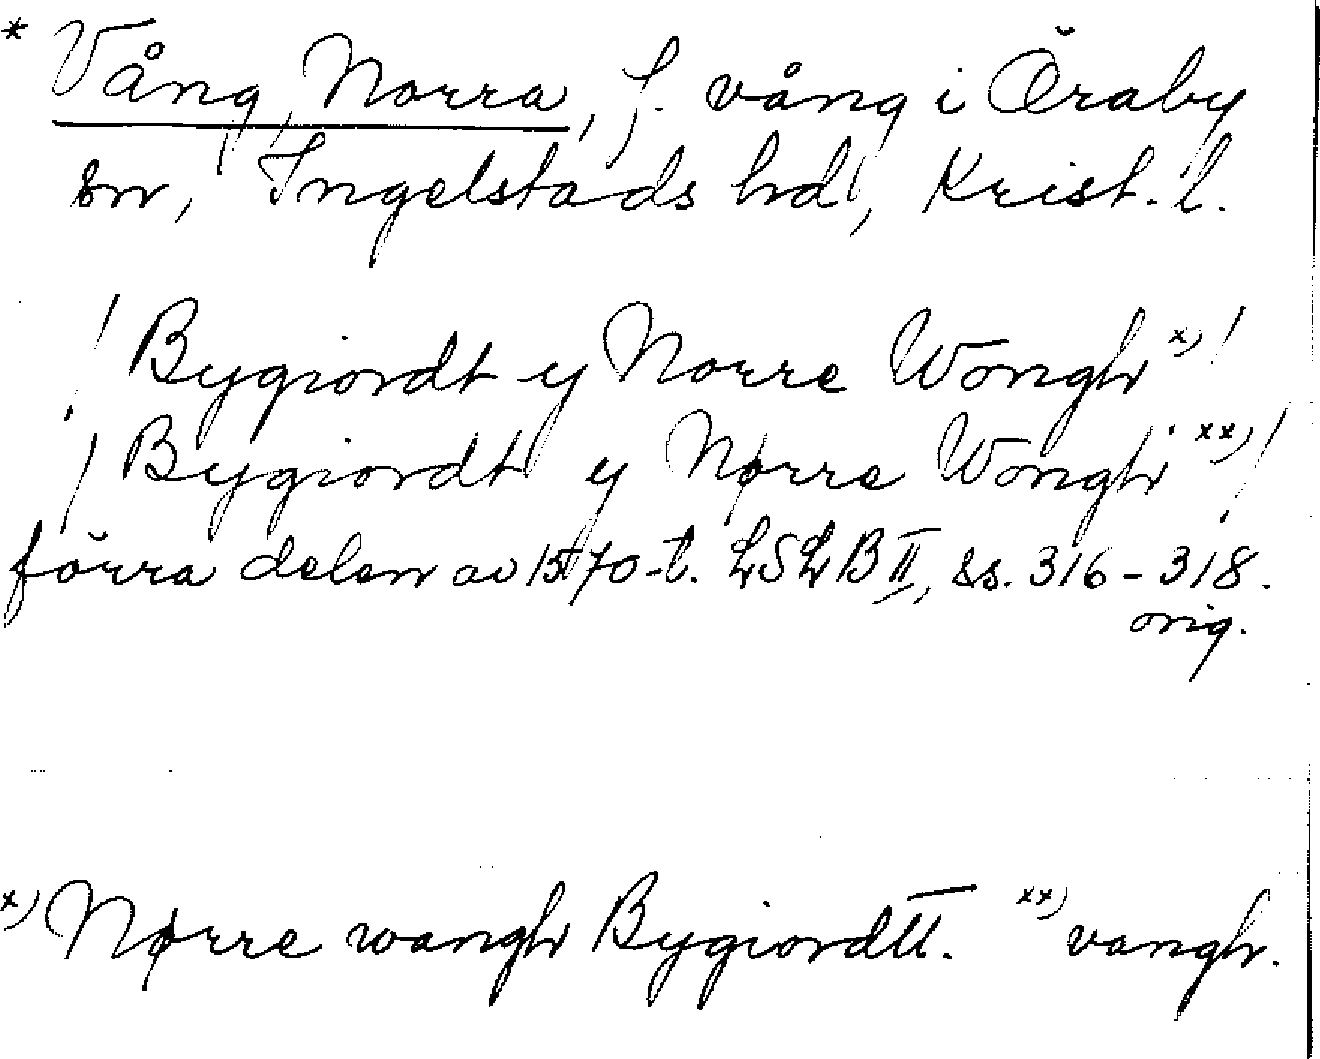 * Vång, Norra, f. vång i Öraby
sn, Ingelstads hd, Krist. l.
/ Bygiordt y Norre Wongh x) /
/ Bygiordt y Nørre Wongh xx) /
förra delen av 1570-t. LSLB II, ss. 316-318.
orig.
x) Nørre wangh Bygiordtt. xx) vangh.